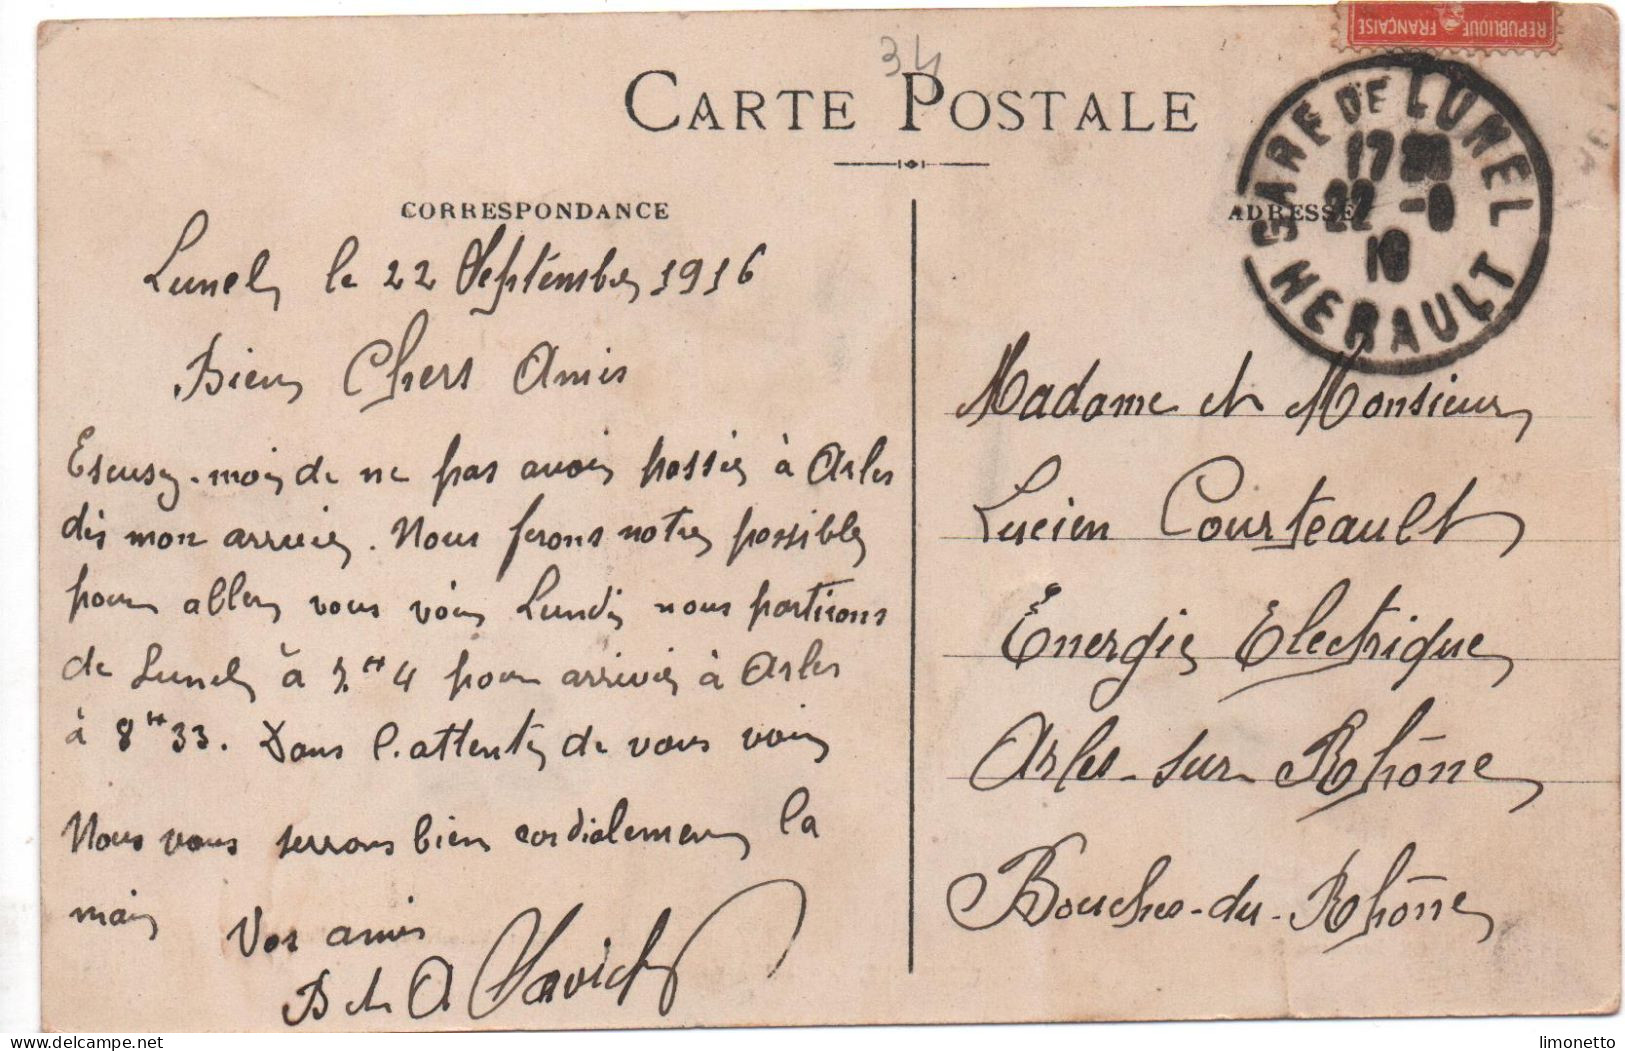 34
RÉPUBLIQUE FRANÇAISE
CARTE POSTALE
GARE DE LUNEL
22 -9
16
HERAULT
CORRESPONDANCE
ADRESSE
Lunel le 22 Septembre 1916
Bien Chers Amis
Escusez-moi de ne pas avoir passer à Arles
dès mon arrivée. Nous ferons notre possible
pour aller vous voir Lundi nous partirons
de Lunel à H 4 pour arriver à Arles
à 8H33. Dans l'attente de vous voir
Nous vous serrons bien cordialement la
main
Vos amis
B et A
Madame et Monsieur
Lucien Courteault
Energie Electrique
Arles-sur-Rhône
Bouches-du-Rhône
limonetto